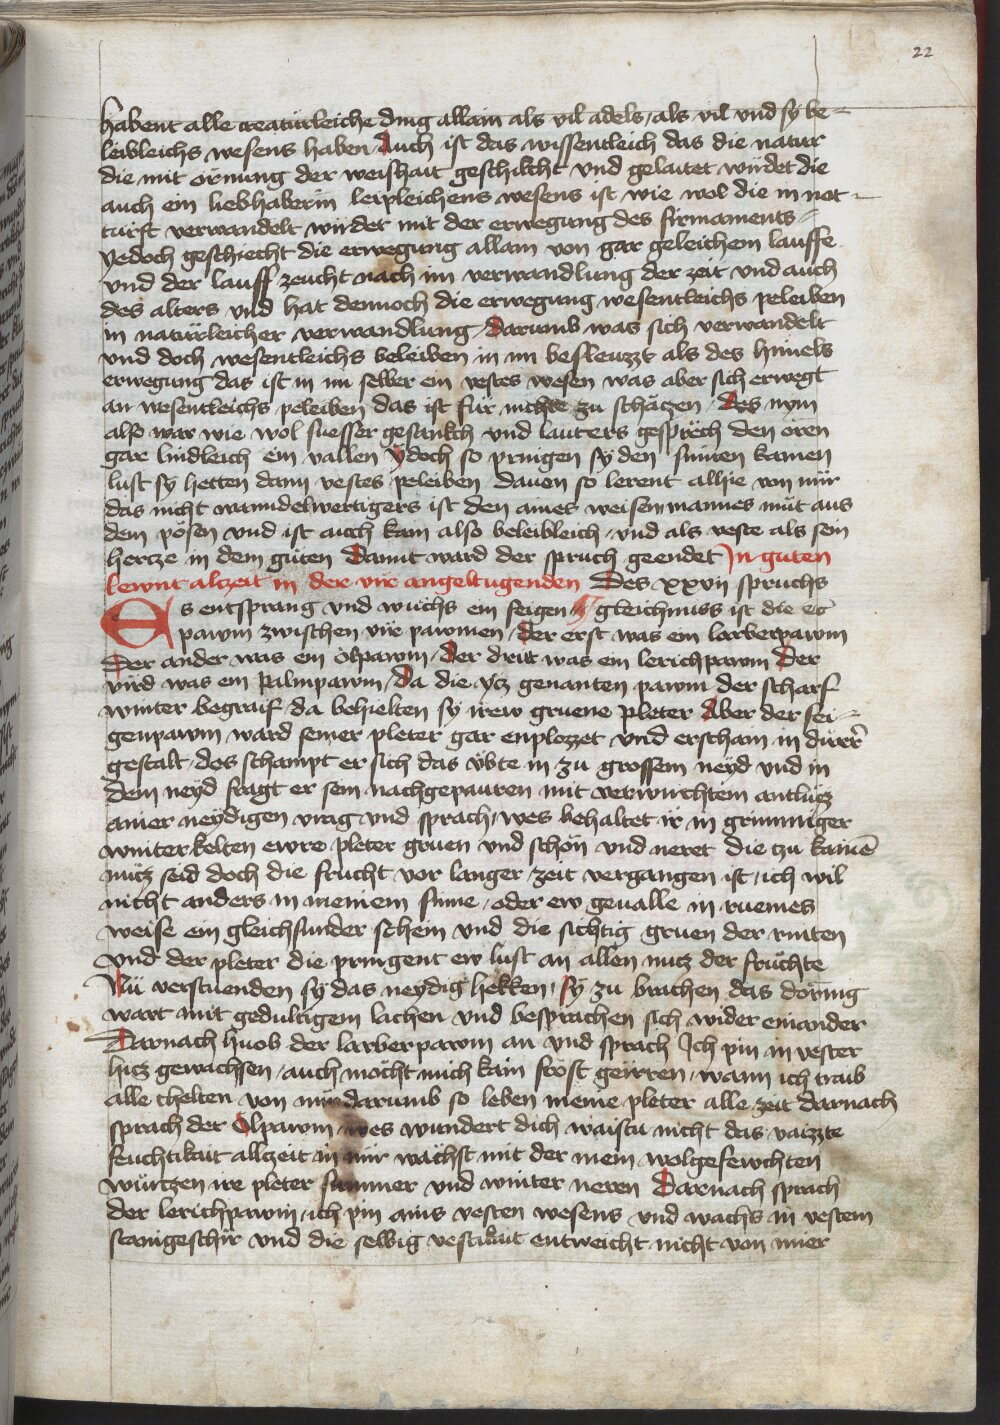 22
habent alle creatürleiche ding allain als vil adels / als vil vnd sy be-
leibleichs wesens haben Auch ist das wissentleich das die natur
die mit örnung der weishait geschikcht vnd gelaitet würdet die
auch ein liebhaberin leipleichens wesens ist wie wol die in not-
turft verwandelt wirdet mit der erwegung des firmaments
yedoch geschiecht die erwegung allain von gar geleichem lauffe
vnd der lauff zeucht nach im verwandlung der zeit vnd auch
des alters vnd hat dennoch die erwegung wesentleichs peleiben
in natürleicher verwandlung Darumb was sich verwandelt
vnd doch wesentleichs beleiben in im besleuzzt als des himels
erwegung das ist in im selber ein vestes wesen was aber sich erwegt
an wesentleichs peleiben das ist für nichte zu schäczen Des nym
also war wie wol suesser gesankch vnd lauters gesprëch den oren
gar lindleich ein vallen ydoch so pringen sy den sinnen kainen
lust sy hetten dann vestes peleiben dauon so lerent allhie von mir
das nicht wanndelwertigers ist den aines weisen mannes müt aus
dem pösen vnd ist auch kain also beleibleich vnd als veste als sein
hercze in dem güten Damit ward der spruch geendet In guten
lewnt alczeit in der vire angeltugenden Des xxvii spruchs
Es entsprang vnd wuchs ein feigen gleichnuss ist die
pawm zwischen vire pawmen Der erst was ein lorberpawm
Der ander was ein ölpawm Der dritt was ein lerichpawm Der
vird was ein palmpawm Da die ycz genanten pawm der scharf
winter begraif da behielten sy irew gruene pleter Aber der fei-
genpawm ward seiner pleter gar enplözzet vnd erschain in dürrer
gestalt des schampt er sich das vbte in zu grossem neyd vnd in
dem neyd fragt er sein nachgepauren mit verwurchtem antlücz
ainer neydigen vrag vnd sprach wes behaltet ir in grimmiger
winterkelten ewre pleter gruen vnd schön vnd neret die czu kainē
nücz seid doch die frucht vor langer zeit vergangen ist ich wil
nicht anders in meinem sinne oder ew geualle in ruemes
weise ein gleichsunder schein vnd die sichtig gruen der rinten
vnd der pleter die pringent ew lust an allen nucz der früchte
Nü verstuenden sy das neydig hekken sy zu brachen das dörnig
wart mit gedultigem lachen vnd besprachen sich wider einander
Darnach huob der lorberpawm an vnd sprach Ich pin in vester
hicz gewachsen auch möcht mich kain frost geirren wann ich traib
alle chelten von mir darumb so leben meine pleter alle zeit darnach
sprach der Olpawm wes wundert dich waistu nicht das vaizzte
feuchtikait allczeit in mir wächst mit der mein wolgefewchten
würtzen ire pleter summer vnd winter neren Darnach sprach
der lerichpawm ich pin ains vesten wesens vnd wachs in vestem
stainigeschir vnd die selbig vestikait entweicht nicht von mier